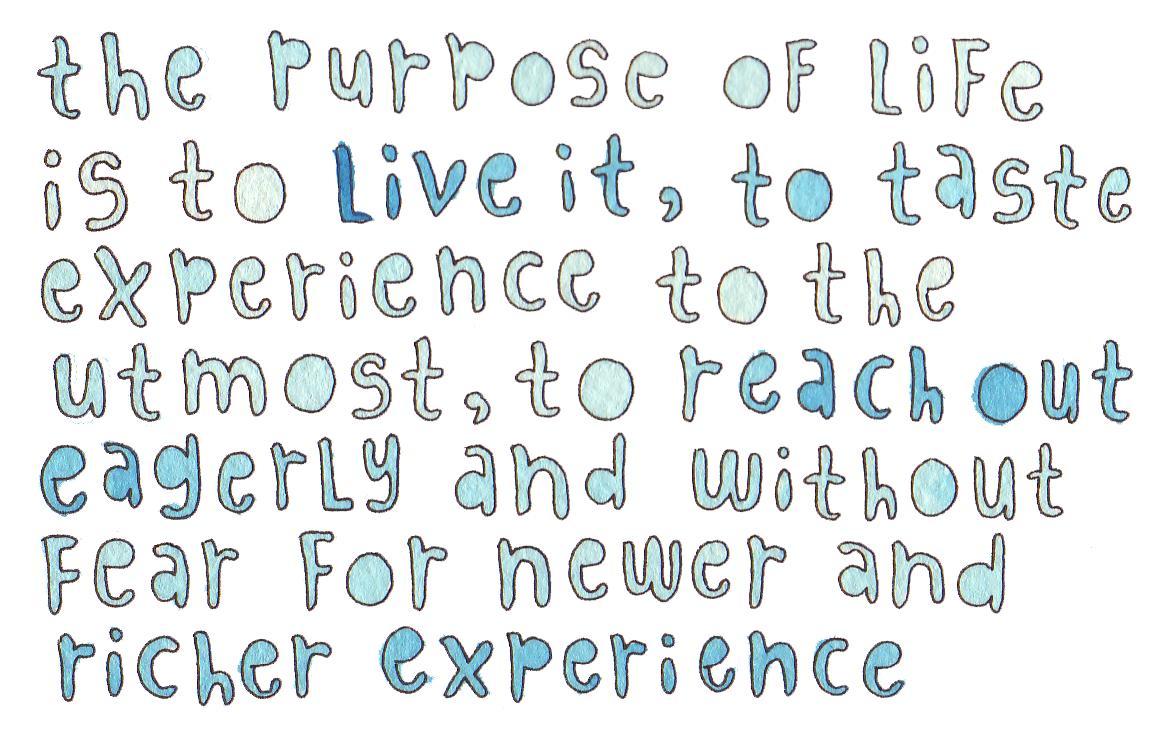 the purpose of Life
is to Live it, to taste
experience to the
utmost, to reach out
eagerLy and without
Fear For newer and
richer experience